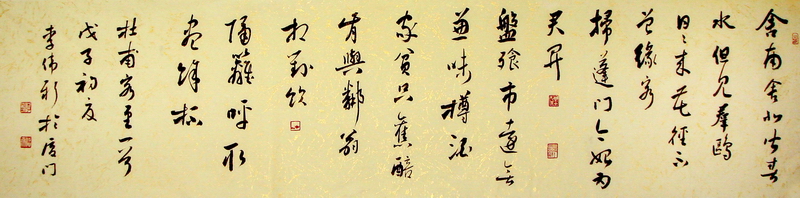 舍南舍北皆春
水但见羣鸥
日々来花径不
曾缘客
掃蓬门今始为
君开
盤飱市遠无
兼味樽酒
家貧只舊醅
肯與鄰翁
相对饮
隔籬呼取
尽馀杯
杜甫客至一首
戊子初夏
李伟新於厦门